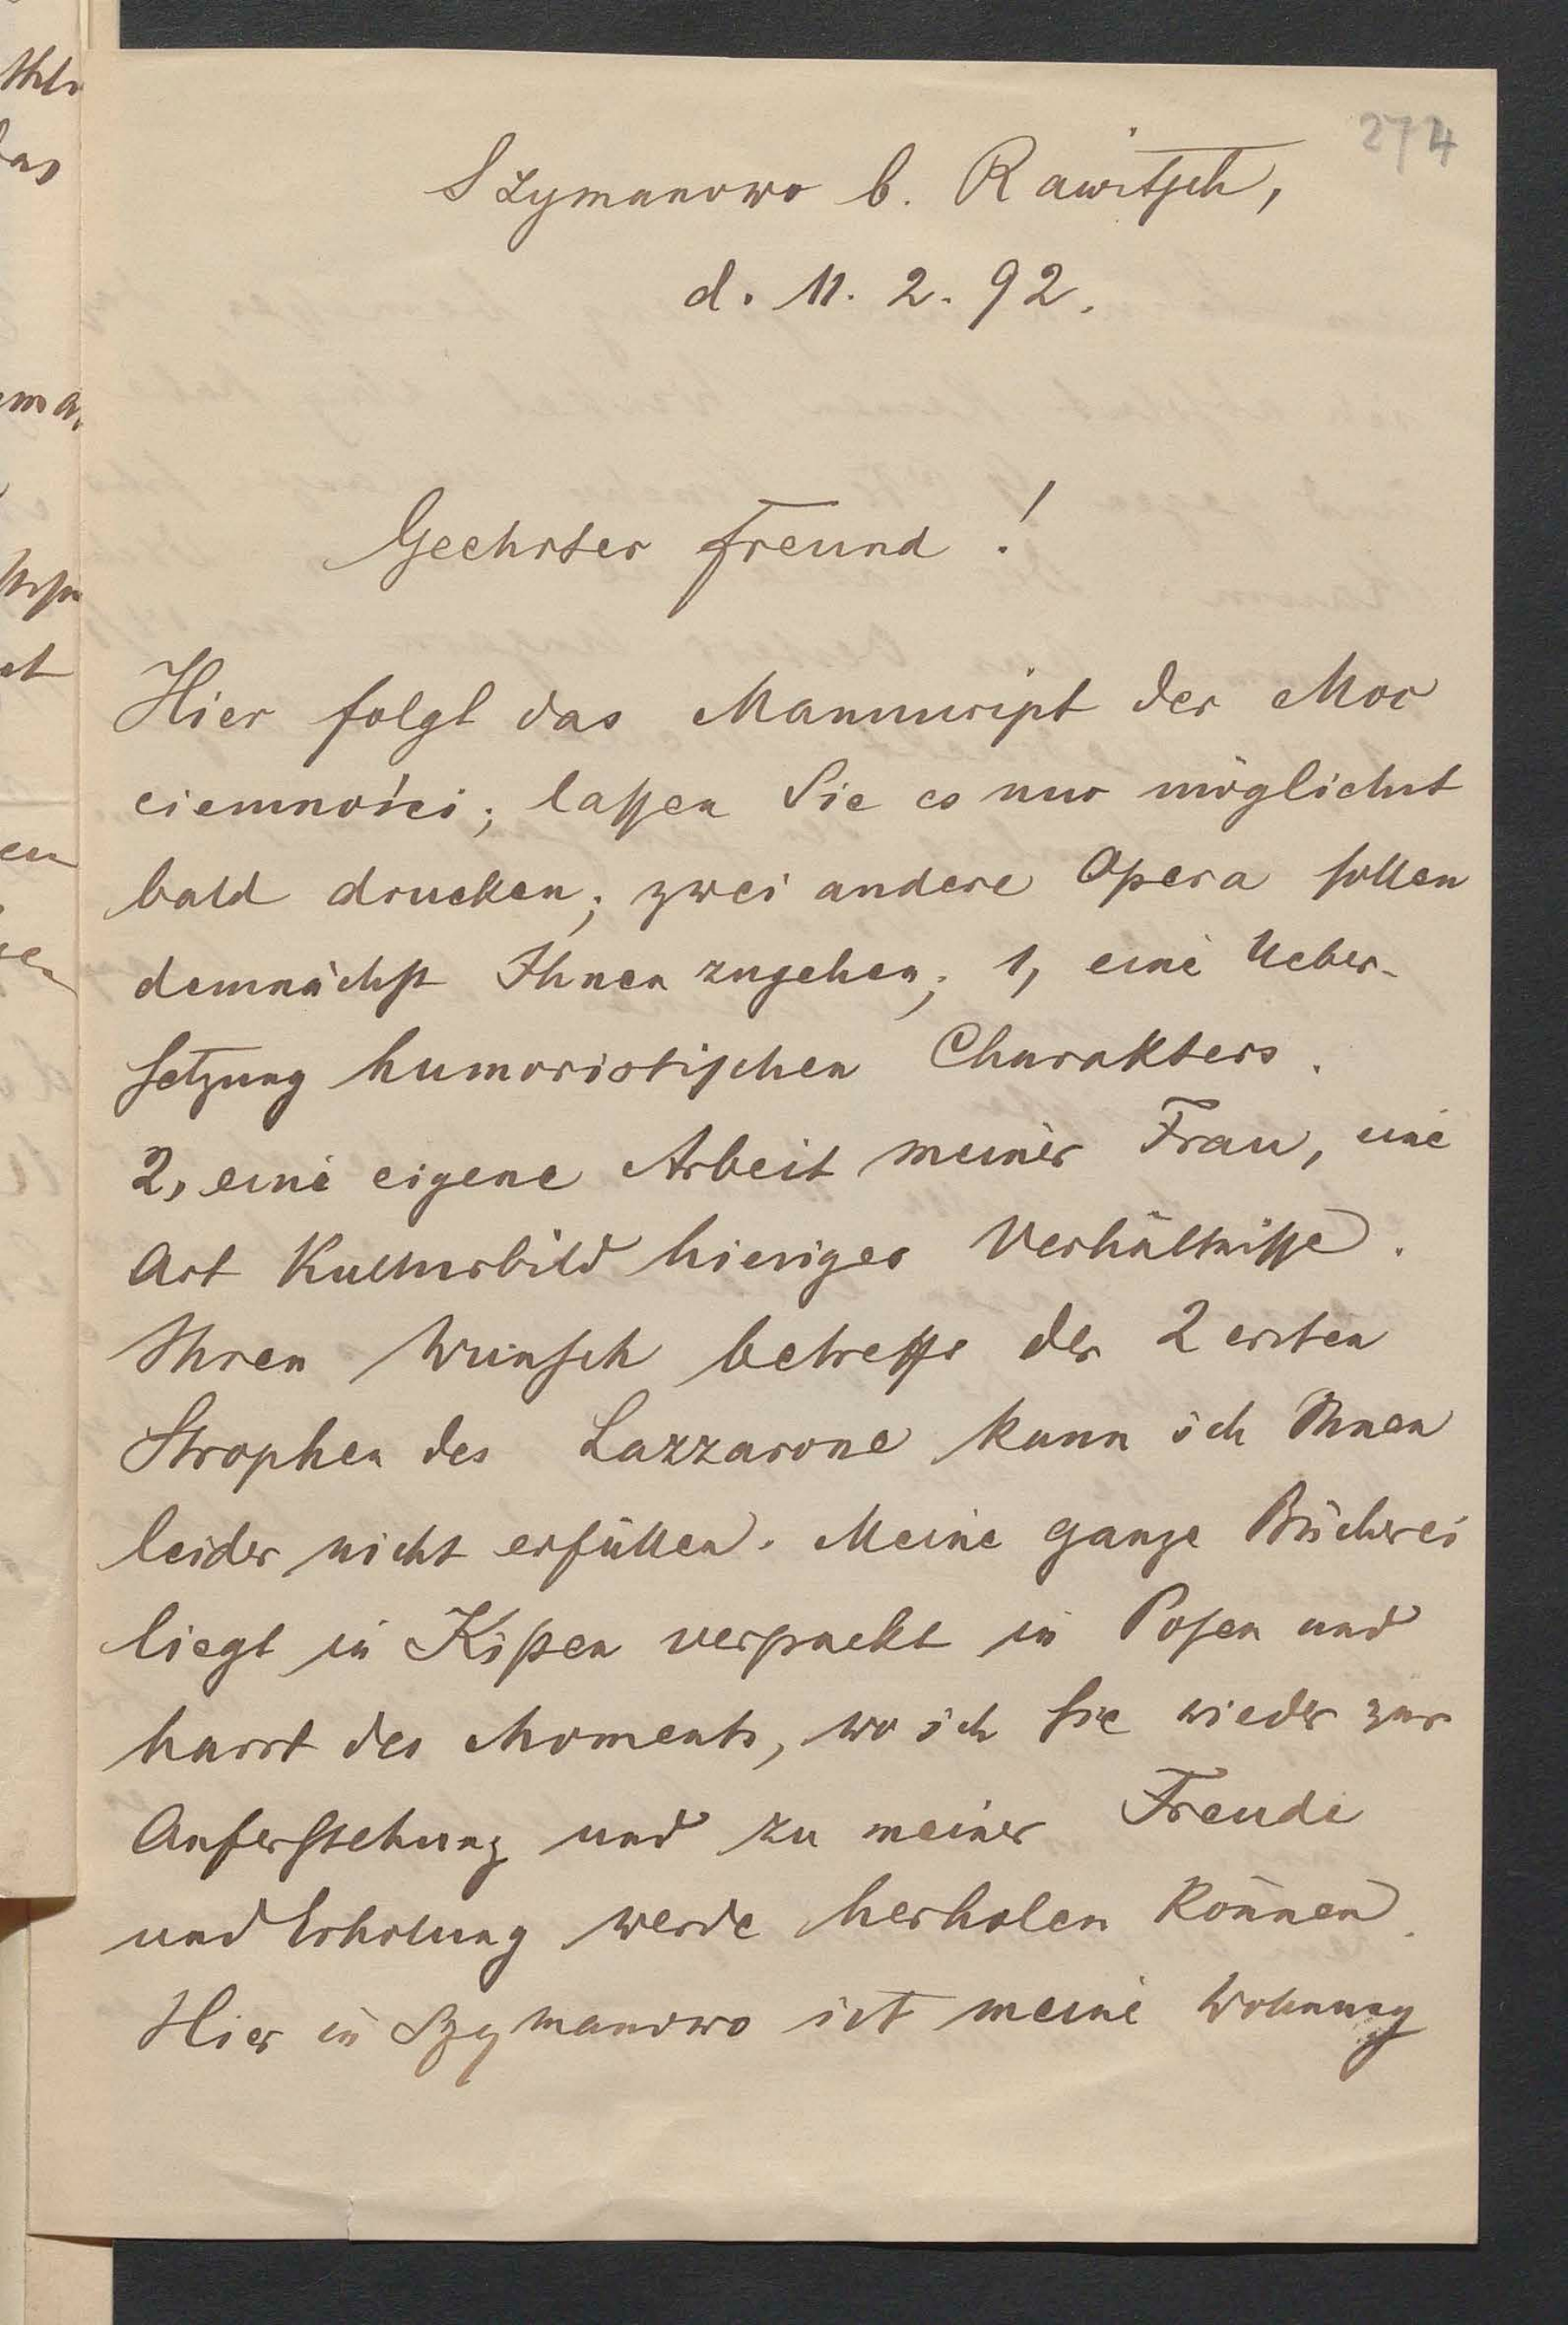 274
Szymanowo b. Rawitsch,
d. 11. 2. 92.
Geehrter Freund!
Hier folgt das Manuscript der Moc
ciemności; lassen Sie es nur möglichst
bald drucken; zwei andere Opera sollen
demnächst Ihnen zugehen; 1, eine Ueber-
setzung humoristischen Charakters.
2, eine eigene Arbeit meiner Frau, eine
Art Kulturbild hiesiger Verhältnisse.
Ihren Wunsch betreffs der 2 ersten
Strophen des Lazzarone kann ich Ihnen
leider nicht erfüllen. Meine ganze Bücherei
liegt in Kisten verpackt in Posen und
harrt des Moments, wo ich Sie wieder zur
Auferstehung und zu meiner Freude
und Erholung werde herholen können.
Hier in Szymanowo ist meine Wohnung